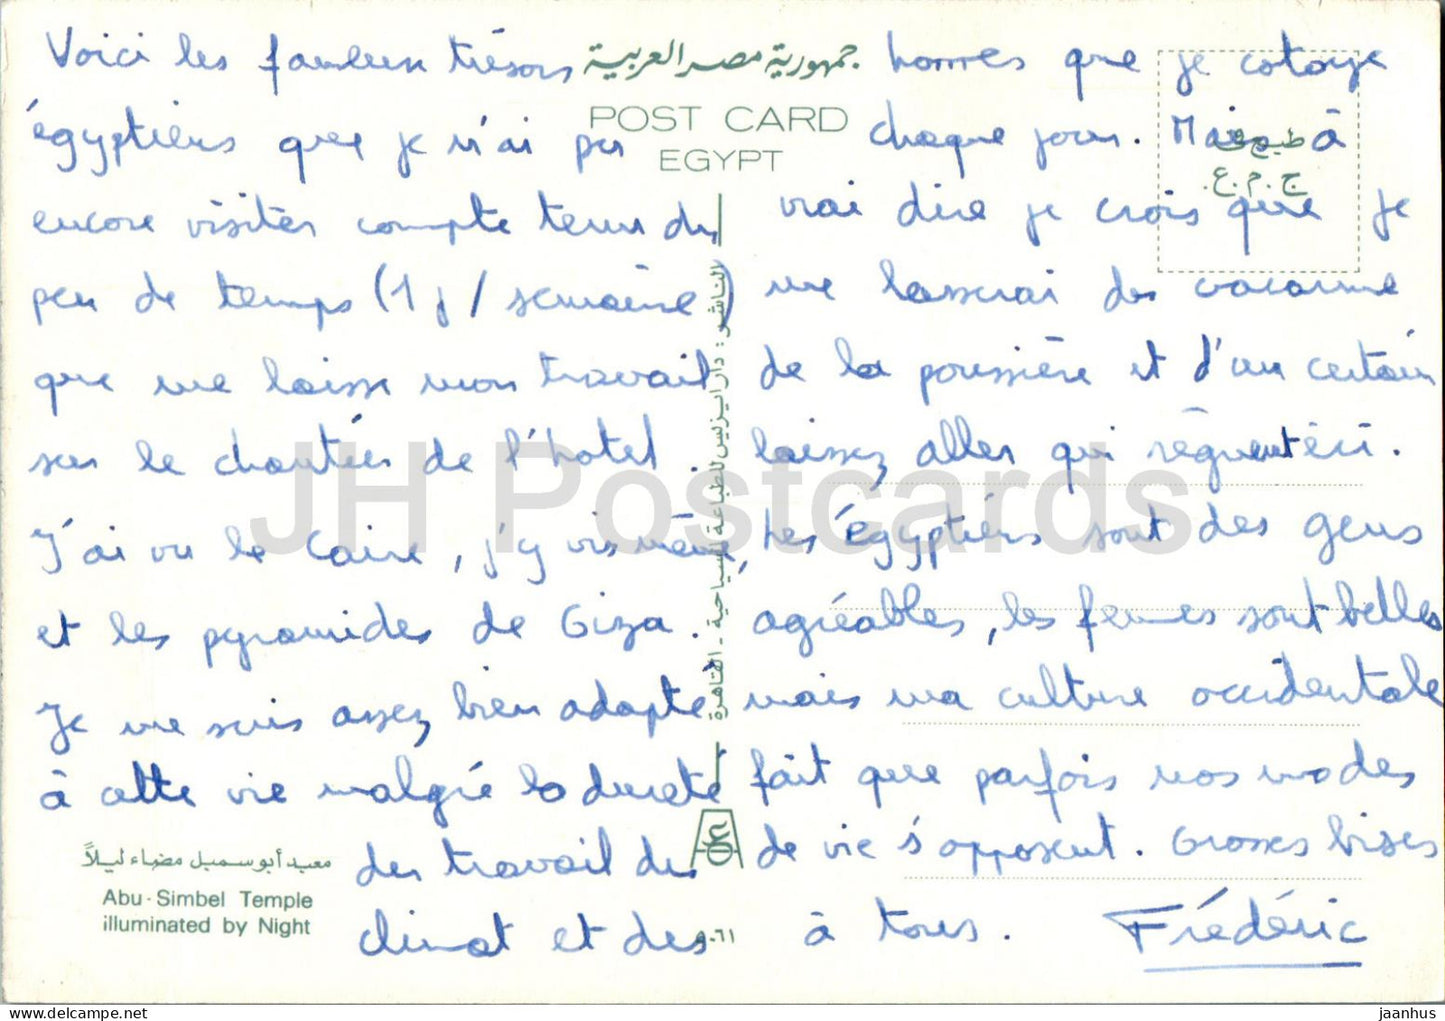 Voici les fameux trésors
égyptiens que je n'ai pu
encore visiter compte tenu du
peu de temps (1 j / semaine)
que me laisse mon travail
sur le chantier de l'hotel.
J'ai vu le Caire, j'y vis même,
et les pyramides de Giza.
Je me suis assez bien adapté
à cette vie malgré la dureté
du travail du
climat et des
hommes que je cotoye
chaque jour. Mais à
vrai dire je crois que je
me lasserai du vacarme
de la poussière et d'un certain
laissez aller qui règnent ici.
Les égyptiens sont des gens
agréables, les femmes sont belles
mais ma culture occidentale
fait que parfois nos modes
de vie s'opposent. Grosses bises
à tous. Frédéric
جمهورية مصر العربية
POST CARD
EGYPT
طبع فى
ج.م.ع.
الناشر: دار ايزيس للطباعة السياحية - القاهرة
معبد أبو سمبل مضاء ليلاً
Abu-Simbel Temple
illuminated by Night
٩٠٦١
JH Postcards
www.delcampe.net
jaanhus